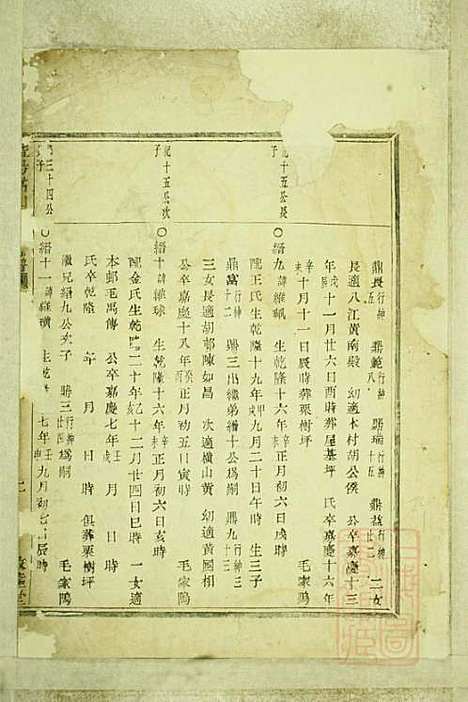 鼎長行紳五 鼎範行紳八 勝瑞行紳十五 鼎益行紳廿三 二女
長適八江黃南殿 幼適本村胡公侯 公卒嘉慶十三
年戊十一月廿六日酉時葬屋基坪 氏卒嘉慶十六年
辛未十月十一日辰時葬栗樹坪 毛家隝
記十五公長子
〇縉九諱維珮 生乾隆十六年辛未正月初六日戌時
配王氏生乾隆十九年甲戌九月二十日午時 生三子
鼎高行紳十二 鼎三出繼弟縉十公爲嗣 鼎九行紳三十三
三女長適胡邨陳如昌 次適橫山黃 幼適黃國相
公卒嘉慶十八年癸酉正月初五日寅時 毛家隝
記十五公次子
〇縉十諱維球 生乾隆十六年辛未正月初六日亥時
配金氏生乾隆二十年乙亥十二月廿四日巳時 一女適
本邨毛禹傳 公卒嘉慶七年壬戌 月 日 時
氏卒乾隆 年 月 日 時 俱葬栗樹坪
三十四公
〇縉十一諱維橫 生乾 七年壬 九月初 日辰時
繼兄縉九公次子 勝三行紳廿四爲嗣 毛家隝